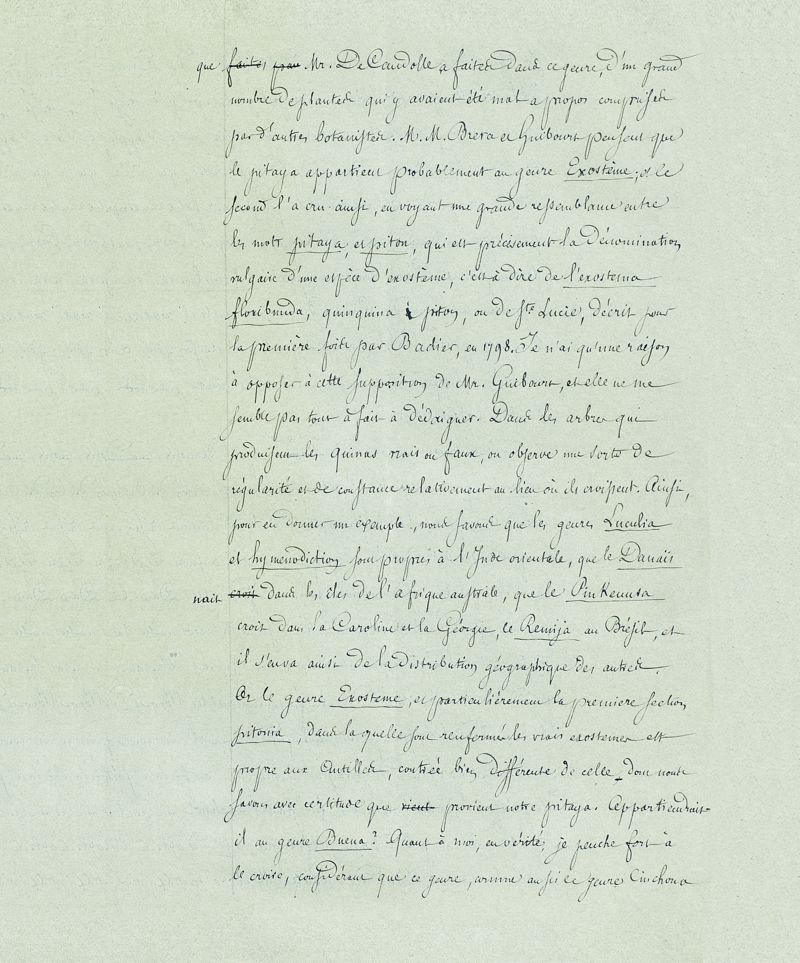 que faites par Mr. De Candolle a faites dans ce genre, d'un grand
nombre de plantes qui y avaient été mal a propos comprises
par d'autres botanistes. M. M. Brera et Guibourt pensent que
le pitaya appartient probablement au genre Exostème; et le
second l'a cru ainsi, en voyant une grande ressemblance entre
les mots pitaya, et piton, qui est précisement la dénomination
vulgaire d'une espèce d'exostème, c'est à dire de l'exostema
floribunda, quinquina piton, ou de Ste Lucie, décrit pour
la première fois par Badier, en 1798. Je n'ai qu'une raison
à opposer à cette supposition de Mr. Guibourt, et elle ne me
semble pas tout à fait à dédaigner. Dans les arbres qui
produisent les quinas vrais ou faux, on observe une sorte de
régularité et de constance relativement au lieu où ils croissent. Ainsi,
pour en donner un exemple, nous savons que les genres Luculia
et hymenodiction sont propres à l'Inde orientale, que le Danaïs
nait croit dans les îles de l'afrique australe, que le Pinkenusa
croit dans la Caroline et la Géorgie, le Remija au Brésil, et
il s'en va ainsi de la distribution géographique des autres.
Or le genre Exosteme, et particulièrement la premiere section
pitonia, dans la quelle sont renfermés les vrais exostemes est
propre aux Antilles, contrée bien différente de celle dont nous
savons avec certitude que vient provient notre pitaya. Appartiendrait-
il au genre Buena? Quant à moi, en vérité, je penche fort à
le croire, considérant que ce genre, comme aussi le genre Cinchona